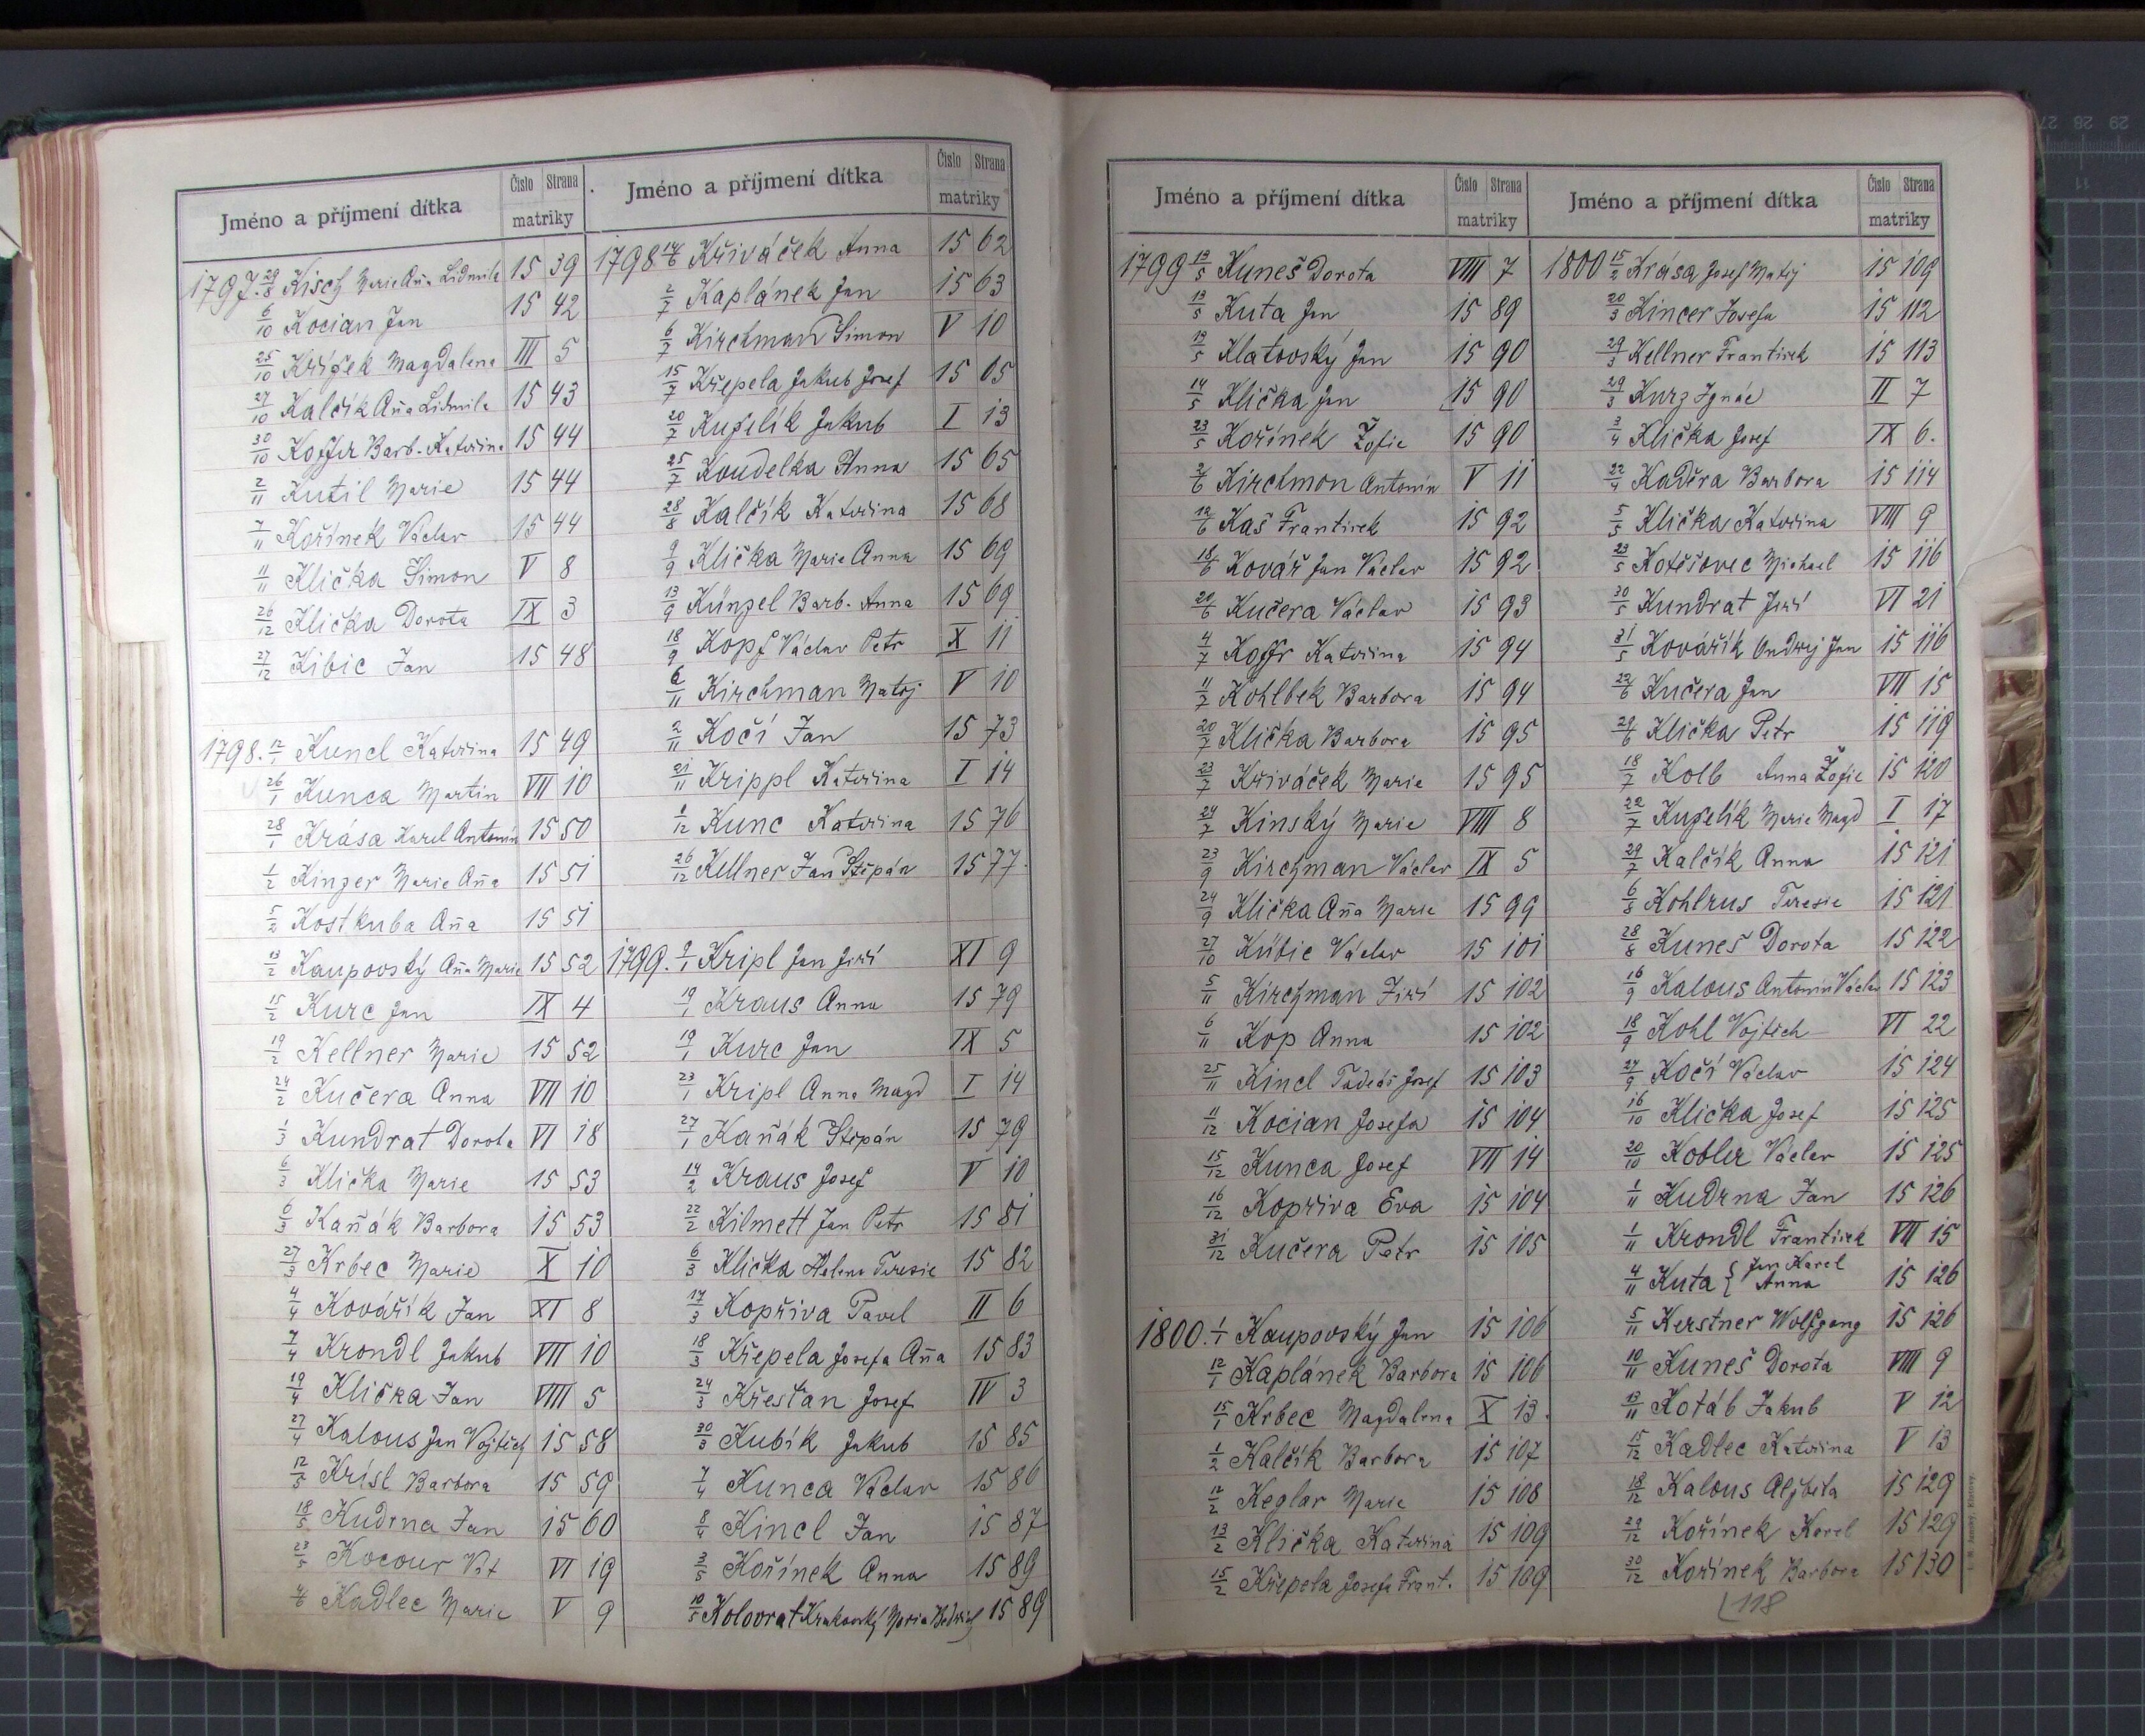 Jméno a příjmení dítka Číslo Strana matriky
1797. 29/8 Kisch Marie Aña Lidmila 15 39
6/10 Kocian Jan 15 42
25/10 Křížek Magdalena III 5
27/10 Kalčík Aña Lidmila 15 43
30/10 Koffer Barb. Kateřina 15 44
2/11 Kutil Marie 15 44
7/11 Kořínek Václav 15 44
11/11 Klička Šimon V 8
26/12 Klička Dorota IX 3
27/12 Kibic Jan 15 48
1798. 12/1 Kuncl Kateřina 15 49
26/1 Kunca Martin VII 10
28/1 Krása Karel Antonín 15 50
1/2 Kinzer Marie Aña 15 51
5/2 Kostkuba Aña 15 51
13/2 Kaupovský Aña Marie 15 52
15/2 Kurc Jan IX 4
19/2 Kellner Marie 15 52
24/2 Kučera Anna VII 10
1/3 Kundrat Dorota VI 18
6/3 Klička Marie 15 53
6/3 Kaňák Barbora 15 53
27/3 Krbec Marie X 10
4/4 Kovářík Jan XI 8
7/4 Krondl Jakub VII 10
19/4 Klička Jan VIII 5
27/4 Kalous Jan Vojtěch 15 58
12/5 Krísl Barbora 15 59
18/5 Kudrna Jan 15 60
23/5 Kocour Vít VI 19
4/6 Kadlec Marie V 9
Jméno a příjmení dítka Číslo Strana matriky
1798 14/6 Křiváček Anna 15 62
2/7 Kaplánek Jan 15 63
6/7 Kirchman Šimon V 10
15/7 Křepela Jakub Josef 15 65
20/7 Kuželík Jakub I 13
25/7 Koudelka Anna 15 65
28/8 Kalčík Kateřina 15 68
9/9 Klička Marie Anna 15 69
13/9 Künzel Barb. Anna 15 69
18/9 Kopf Václav Petr X 11
6/11 Kirchman Matěj V 10
2/11 Kočí Jan 15 73
21/11 Krippl Kateřina I 14
1/12 Kunc Kateřina 15 76
26/12 Kellner Jan Štěpán 15 77.
1799. 9/1 Kripl Jan Jiří XI 9
19/1 Kraus Anna 15 79
19/1 Kurc Jan IX 5
23/1 Kripl Anna Magd I 14
27/1 Kaňák Štěpán 15 79
14/2 Kraus Josef V 10
22/2 Kilmett Jan Petr 15 81
6/3 Klička Helena Teresie 15 82
17/3 Kopřiva Pavel II 6
18/3 Křepela Josefa Aña 15 83
24/3 Křesťan Josef IV 3
30/3 Kubík Jakub 15 85
7/4 Kunca Václav 15 86
8/4 Kincl Jan 15 87
3/5 Kořínek Anna 15 89
10/5 Kolovrat Krakovský Maria Hedwig 15 89
Jméno a příjmení dítka Číslo Strana matriky
1799 13/5 Kuneš Dorota VIII 7
13/5 Kuta Jan 15 89
19/5 Klatovský Jan 15 90
14/5 Klička Jan 15 90
23/5 Kořínek Žofie 15 90
9/6 Kirchmon Antonín V 11
12/6 Kaš František 15 92
18/6 Kovář Jan Václav 15 92
20/6 Kučera Václav 15 93
4/7 Koffr Kateřina 15 94
11/7 Kohlbek Barbora 15 94
20/7 Klička Barbora 15 95
23/7 Křiváček Marie 15 95
24/7 Kinský Marie VIII 8
23/9 Kirchman Václav IX 5
24/9 Klička Aña Marie 15 99
27/10 Kúbic Václav 15 101
5/11 Kirchman Jiří 15 102
6/11 Kop Anna 15 102
25/11 Kincl Tadeáš Josef 15 103
11/12 Kocian Josefa 15 104
15/12 Kunca Josef VII 14
16/12 Kopřiva Eva 15 104
31/12 Kučera Petr 15 105
1800. 1/1 Kaupovský Jan 15 106
12/1 Kaplánek Barbora 15 106
15/1 Krbec Magdalena X 13.
1/2 Kalčík Barbora 15 107
12/2 Keglar Marie 15 108
13/2 Klička Kateřina 15 109
15/2 Křepela Josefa Frant. 15 109
Jméno a příjmení dítka Číslo Strana matriky
1800 15/2 Krása Josef Matěj 15 109
20/3 Kincer Josefa 15 112
29/3 Kellner František 15 113
29/3 Kurz Ignác II 7
3/4 Klička Josef IX 6.
22/4 Kaděra Barbora 15 114
5/5 Klička Kateřina VIII 9
23/5 Kotěšovec Michael 15 116
30/5 Kundrat Jiří VI 21
31/5 Kovářík Ondrej Jan 15 116
22/6 Kučera Jan VII 15
29/6 Klička Petr 15 119
18/7 Kolb Anna Žofie 15 120
22/7 Kuželík Marie Magd I 17
29/7 Kalčík Anna 15 121
6/8 Kohlrus Teresie 15 121
28/8 Kuneš Dorota 15 122
16/9 Kalous Antonín Václav 15 123
18/9 Kohl Vojtěch VI 22
27/9 Kočí Václav 15 124
16/10 Klička Josef 15 125
20/10 Kobler Václav 15 125
1/11 Kudrna Jan 15 126
1/11 Krondl František VII 15
4/11 Kuta { Jan Karel Anna 15 126
5/11 Kerstner Wolfgang 15 126
10/11 Kuneš Dorota VIII 9
13/11 Kotáb Jakub V 12
15/12 Kadlec Kateřina V 13
18/12 Kalous Alžběta 15 129
29/12 Kořínek Karel 15 129
30/12 Kořínek Barbora 15 130
118